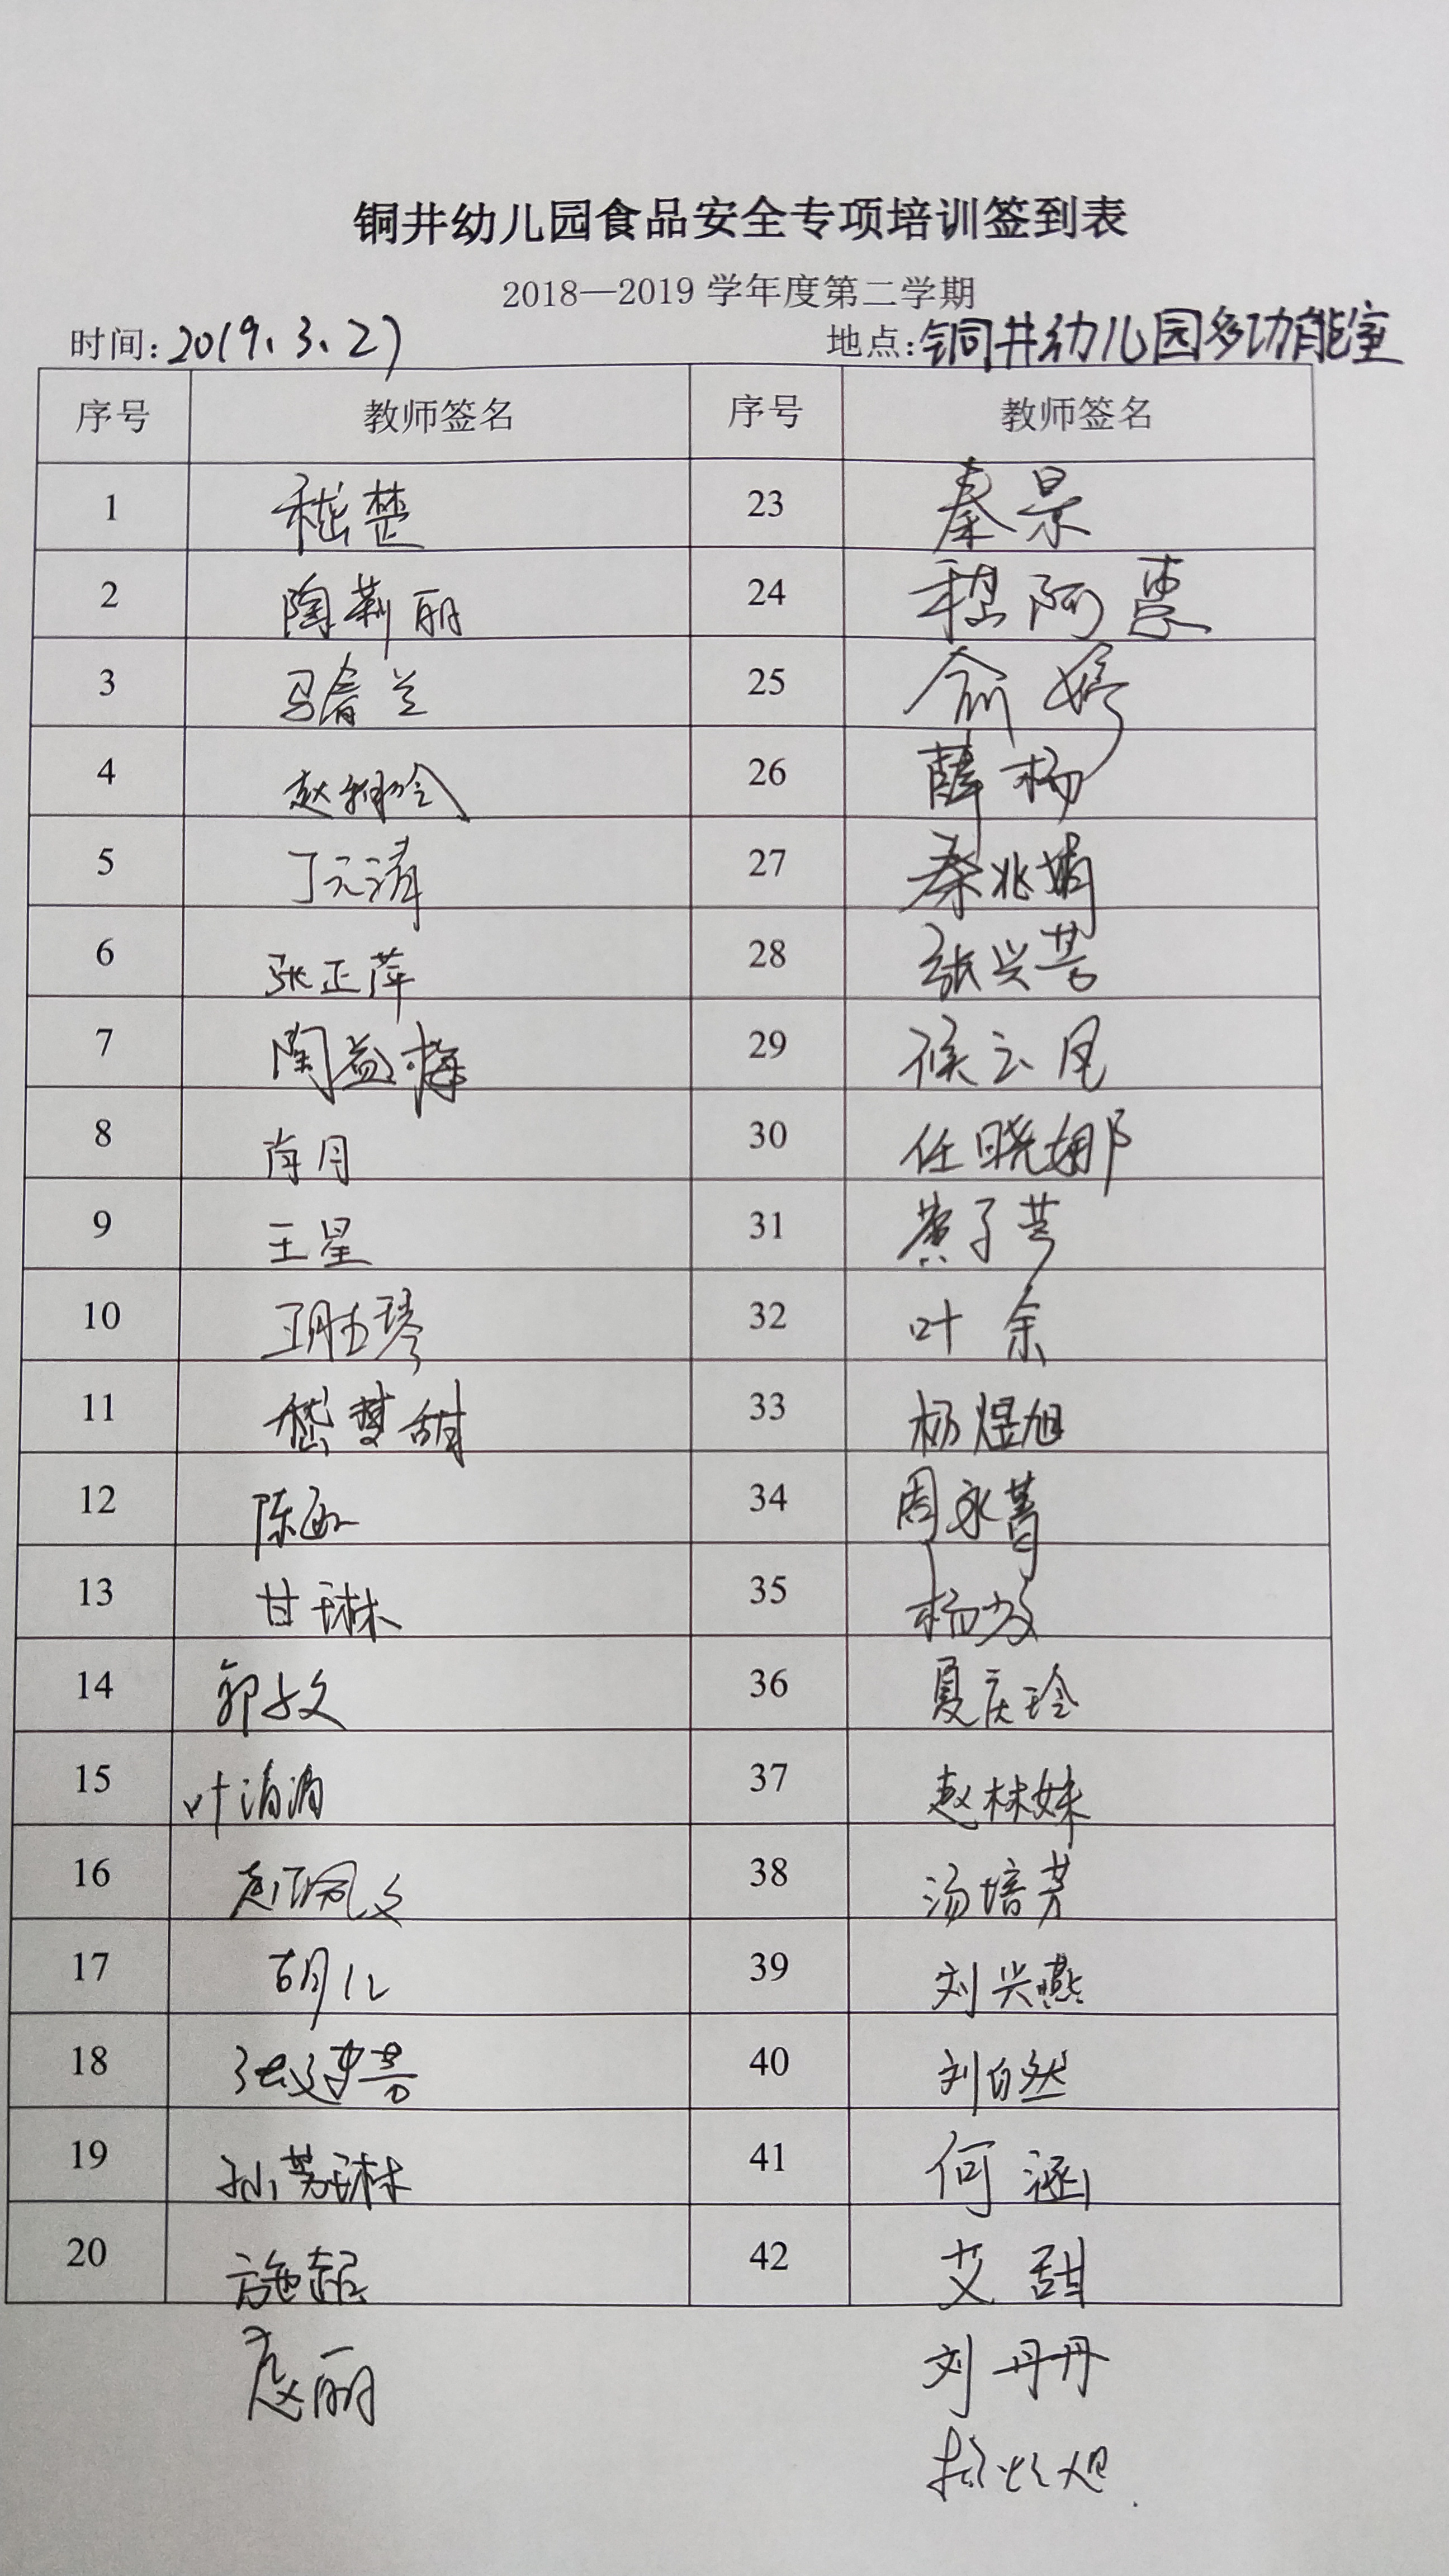 铜井幼儿园食品安全专项培训签到表
2018—2019 学年度第二学期
时间:2019.3.27 地点:铜井幼儿园多功能室
序号 教师签名 序号 教师签名
1 嵇楚 23 秦景
2 陶莉丽 24 嵇阿惠
3 马春兰 25 俞婷
4 赵 26 薛杨
5 丁元涛 27 秦兆娟
6 张正萍 28 张兴芳
7 陶益梅 29 侯云凤
8 肖月 30 任晓娜
9 王星 31 黄子芊
10 王胜琴 32 叶余
11 嵇梦甜 33 杨煜旭
12 陈函 34 周永菁
13 甘琳 35 杨敏
14 郭文 36 夏庆玲
15 叶清清 37 赵林妹
16 赵珮文 38 汤培芳
17 胡儿 39 刘兴燕
18 张建芳 40 刘自然
19 孙芳琳 41 何涵
20 施超 42 艾甜
丽 刘丹丹